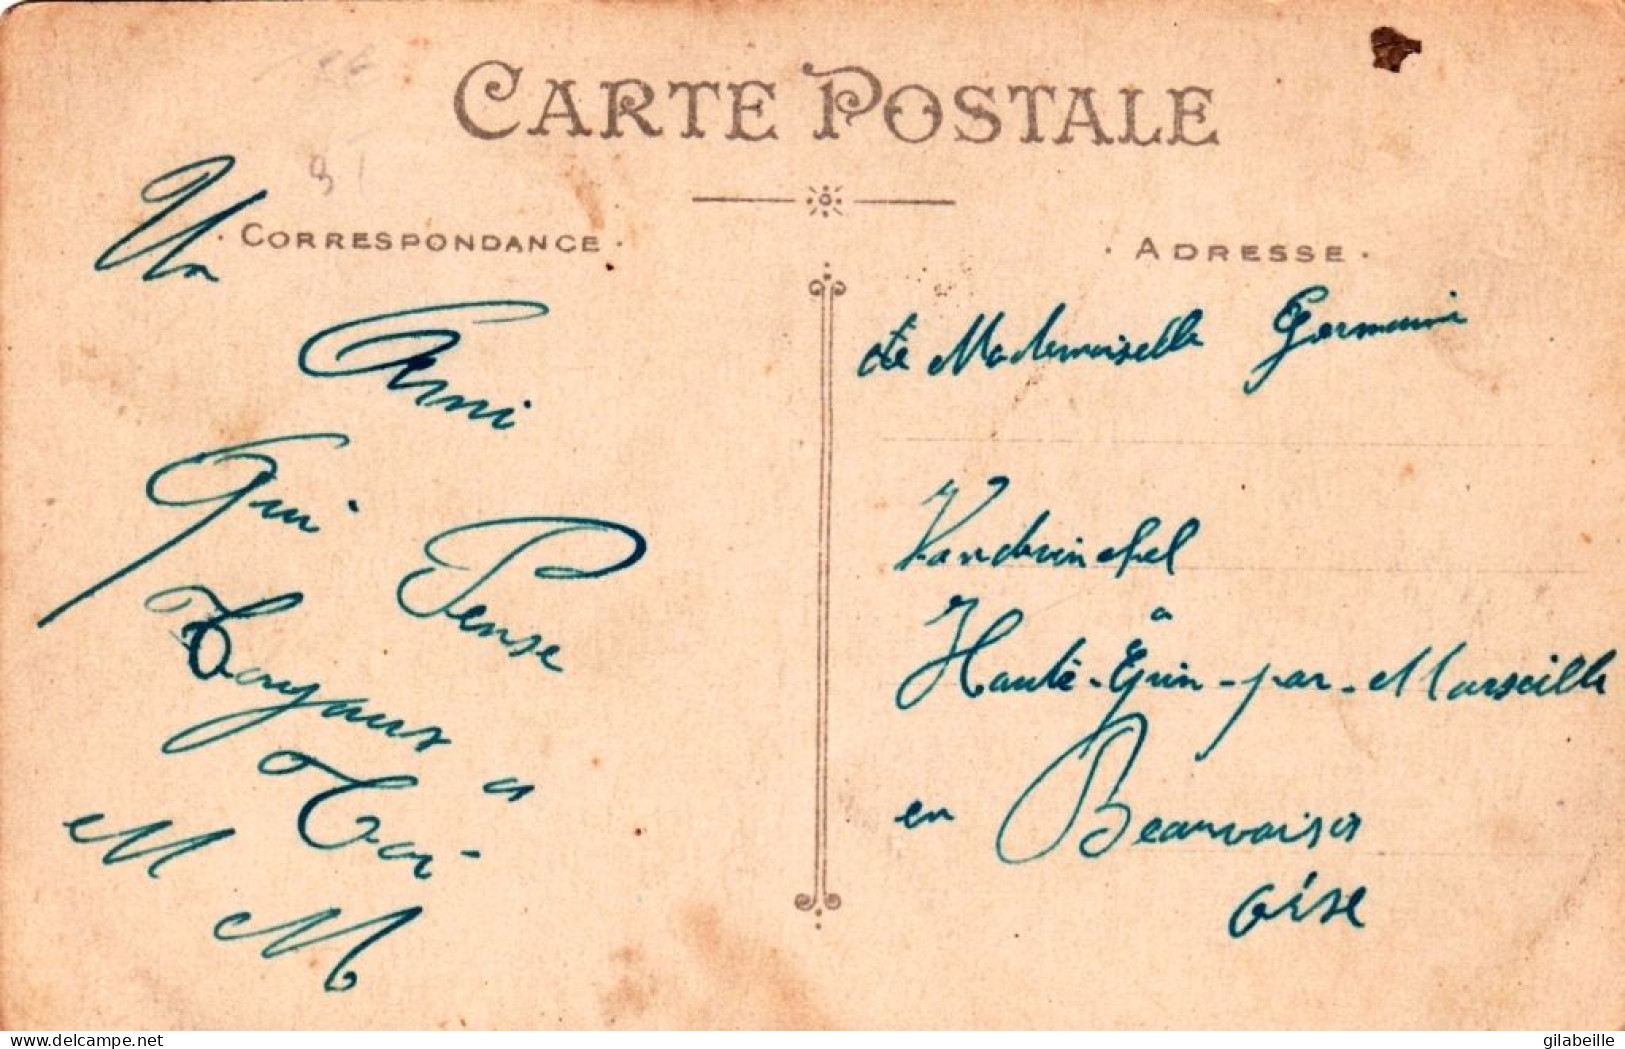 CARTE POSTALE
· CORRESPONDANCE ·
Un
Ami
Qui
Pense
Toujours
a
Toi
M
M
· ADRESSE ·
Mademoiselle Germaine
à
Haute-Epin-par-Marseille
en Beauvaisis
Oise
delcampe.net
gilabeille